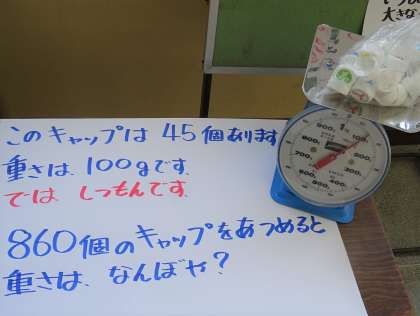 このキャップは 45個あります
重さは、100gです.
では しつもんです.
860個のキャップをあつめると
重さは、なんぼや?
大きな